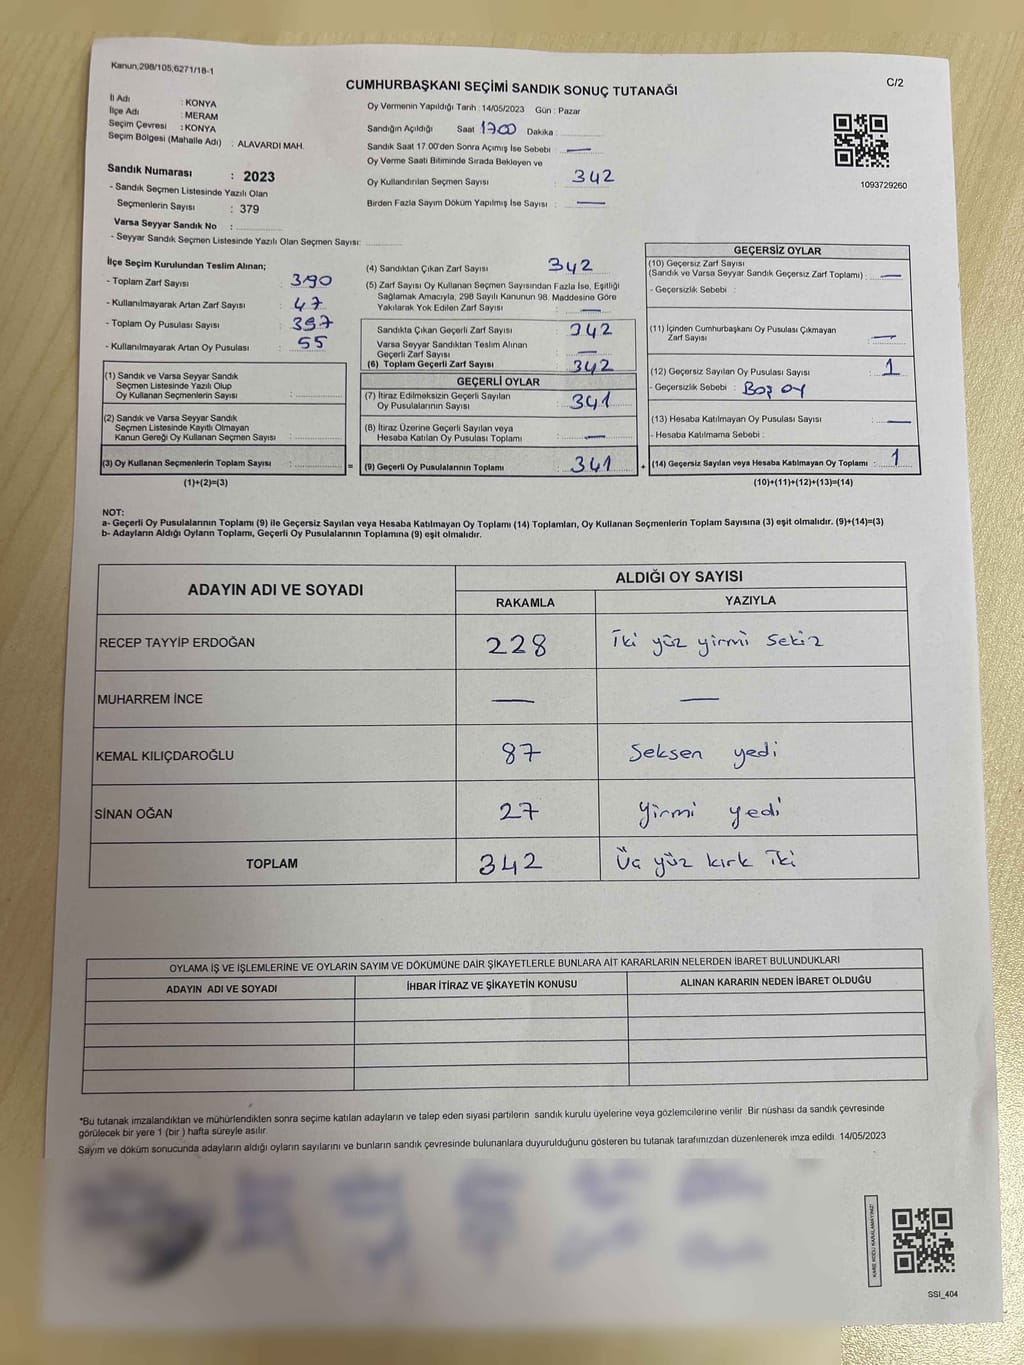 Kanun;298/105,6271/18-1
C/2
CUMHURBAŞKANI SEÇİMİ SANDIK SONUÇ TUTANAĞI
İl Adı : KONYA
İlçe Adı : MERAM
Seçim Çevresi : KONYA
Seçim Bölgesi (Mahalle Adı) : ALAVARDI MAH.
Oy Vermenin Yapıldığı Tarih : 14/05/2023 Gün : Pazar
Sandığın Açıldığı Saat 1700 Dakika :
Sandık Saat 17.00'den Sonra Açımış İse Sebebi : —
Oy Verme Saati Bitiminde Sırada Bekleyen ve
Oy Kullandırılan Seçmen Sayısı : 342
Birden Fazla Sayım Döküm Yapılmış İse Sayısı : —
1093729260
Sandık Numarası : 2023
- Sandık Seçmen Listesinde Yazılı Olan
Seçmenlerin Sayısı : 379
Varsa Seyyar Sandık No :
- Seyyar Sandık Seçmen Listesinde Yazılı Olan Seçmen Sayısı:
İlçe Seçim Kurulundan Teslim Alınan;
- Toplam Zarf Sayısı : 390
- Kullanılmayarak Artan Zarf Sayısı : 47
- Toplam Oy Pusulası Sayısı : 397
- Kullanılmayarak Artan Oy Pusulası : 55
(1) Sandık ve Varsa Seyyar Sandık
Seçmen Listesinde Yazılı Olup
Oy Kullanan Seçmenlerin Sayısı :
(2) Sandık ve Varsa Seyyar Sandık
Seçmen Listesinde Kayıtlı Olmayan
Kanun Gereği Oy Kullanan Seçmen Sayısı :
(3) Oy Kullanan Seçmenlerin Toplam Sayısı :
(1)+(2)=(3)
(4) Sandıktan Çıkan Zarf Sayısı : 342
(5) Zarf Sayısı Oy Kullanan Seçmen Sayısından Fazla İse, Eşitliği
Sağlamak Amacıyla, 298 Sayılı Kanunun 98. Maddesine Göre
Yakılarak Yok Edilen Zarf Sayısı : —
Sandıkta Çıkan Geçerli Zarf Sayısı : 342
Varsa Seyyar Sandıktan Teslim Alınan
Geçerli Zarf Sayısı : —
(6) Toplam Geçerli Zarf Sayısı : 342
GEÇERLİ OYLAR
(7) İtiraz Edilmeksizin Geçerli Sayılan
Oy Pusulalarının Sayısı : 341
(8) İtiraz Üzerine Geçerli Sayılan veya
Hesaba Katılan Oy Pusulası Toplamı : —
= (9) Geçerli Oy Pusulalarının Toplamı : 341
GEÇERSİZ OYLAR
(10) Geçersiz Zarf Sayısı
(Sandık ve Varsa Seyyar Sandık Geçersiz Zarf Toplamı) : —
- Geçersizlik Sebebi :
(11) İçinden Cumhurbaşkanı Oy Pusulası Çıkmayan
Zarf Sayısı : —
(12) Geçersiz Sayılan Oy Pusulası Sayısı : 1
- Geçersizlik Sebebi : Boş oy
(13) Hesaba Katılmayan Oy Pusulası Sayısı : —
- Hesaba Katılmama Sebebi :
+ (14) Geçersiz Sayılan veya Hesaba Katılmayan Oy Toplamı : 1
(10)+(11)+(12)+(13)=(14)
NOT:
a- Geçerli Oy Pusulalarının Toplamı (9) ile Geçersiz Sayılan veya Hesaba Katılmayan Oy Toplamı (14) Toplamları, Oy Kullanan Seçmenlerin Toplam Sayısına (3) eşit olmalıdır. (9)+(14)=(3)
b- Adayların Aldığı Oyların Toplamı, Geçerli Oy Pusulalarının Toplamına (9) eşit olmalıdır.
ADAYIN ADI VE SOYADI ALDIĞI OY SAYISI
RAKAMLA YAZIYLA
RECEP TAYYİP ERDOĞAN 228 İki yüz yirmi sekiz
MUHARREM İNCE — —
KEMAL KILIÇDAROĞLU 87 Seksen yedi
SİNAN OĞAN 27 yirmi yedi
TOPLAM 342 Üç yüz kırk iki
OYLAMA İŞ VE İŞLEMLERİNE VE OYLARIN SAYIM VE DÖKÜMÜNE DAİR ŞİKAYETLERLE BUNLARA AİT KARARLARIN NELERDEN İBARET BULUNDUKLARI
ADAYIN ADI VE SOYADI İHBAR İTİRAZ VE ŞİKAYETİN KONUSU ALINAN KARARIN NEDEN İBARET OLDUĞU
*Bu tutanak imzalandıktan ve mühürlendikten sonra seçime katılan adayların ve talep eden siyasi partilerin sandık kurulu üyelerine veya gözlemcilerine verilir Bir nüshası da sandık çevresinde
görülecek bir yere 1 (bir ) hafta süreyle asılır.
Sayım ve döküm sonucunda adayların aldığı oyların sayılarını ve bunların sandık çevresinde bulunanlara duyurulduğunu gösteren bu tutanak tarafımızdan düzenlenerek imza edildi. 14/05/2023
KARE KODU KARALAMAYINIZ!
SSI_404